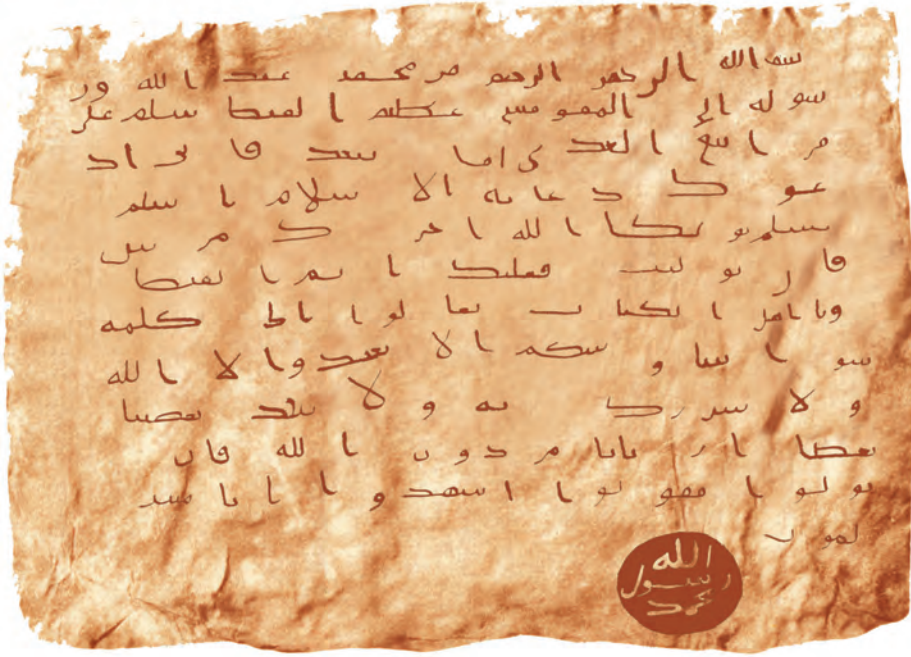 بسم الله الرحمن الرحيم من محمد عبد الله ور
سوله إلى المقوقس عظيم القبط سلم على
من اتبع الهدى اما بعد فانى اد
عوك بدعاية الاسلام اسلم
تسلم يوتك الله اجرك مرتين
فان توليت فعليك اثم القبط
ويا اهل الكتاب تعالوا الى كلمة
سوا بيننا وبينكم الا نعبدوا الا الله
ولا نشرك به ولا يتخذ بعضنا
بعضا اربابا من دون الله فان
تولوا فقولوا اشهدوا بانا مس
لمون
الله
رسول
محمد